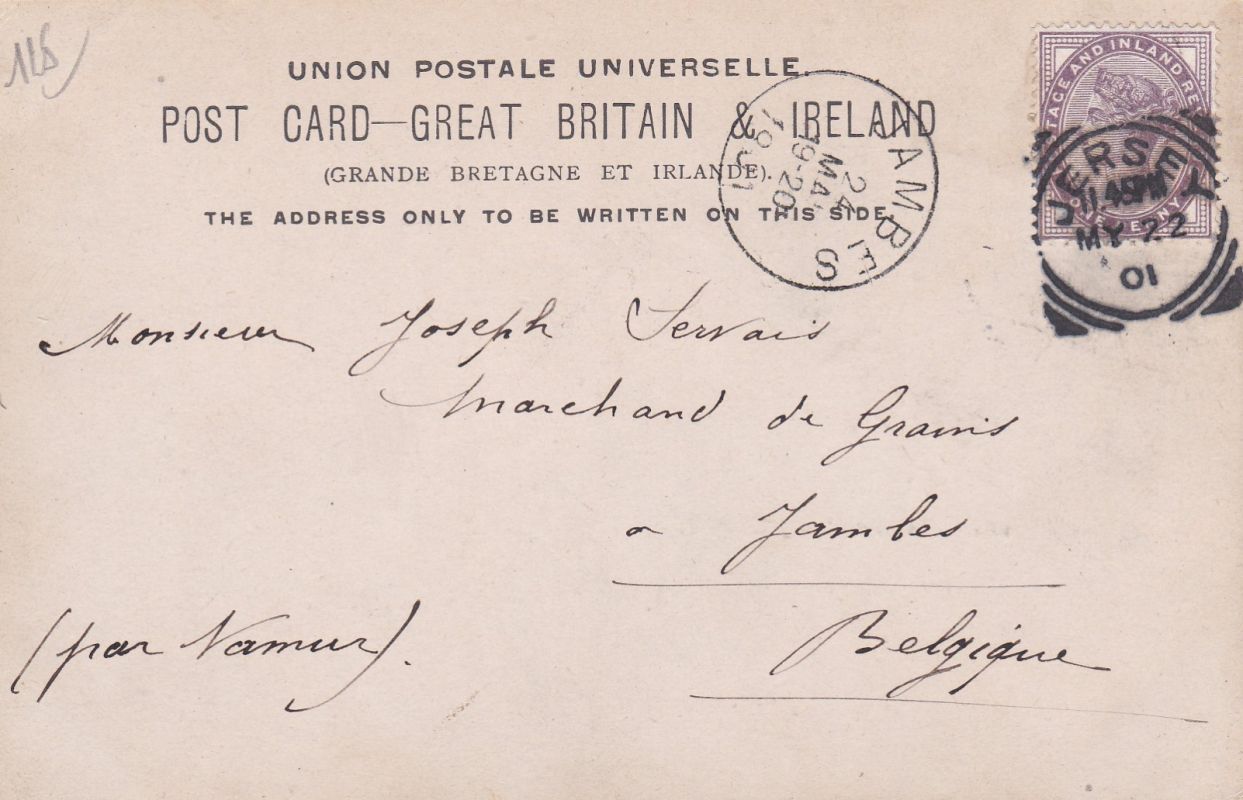 UNION POSTALE UNIVERSELLE.
POST CARD—GREAT BRITAIN & IRELAND
(GRANDE BRETAGNE ET IRLANDE).
THE ADDRESS ONLY TO BE WRITTEN ON THIS SIDE.
JAMBES
19-20
24
MAI
1901
TAGE AND INLAND RE
ONE PENNY
JERSEY
11.45PM
MY 22
01
Monsieur Joseph Servais
Marchand de Grains
a Jambes
Belgique
(par Namur).